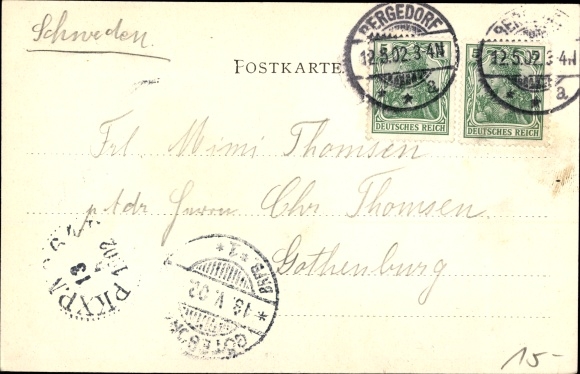 Schweden
POSTKARTE
BERGEDORF
12.5.02 3-4N
* * a
BERGEDORF
12.5.02 3-4N
* * a
5 5
DEUTSCHES REICH
DEUTSCHES REICH
Frl. Mimi Thomsen
p Adr Herrn Chr Thomsen
Gothenburg
GÖTEBORG
* 13. V. 02
PKXP.
13
02
15-